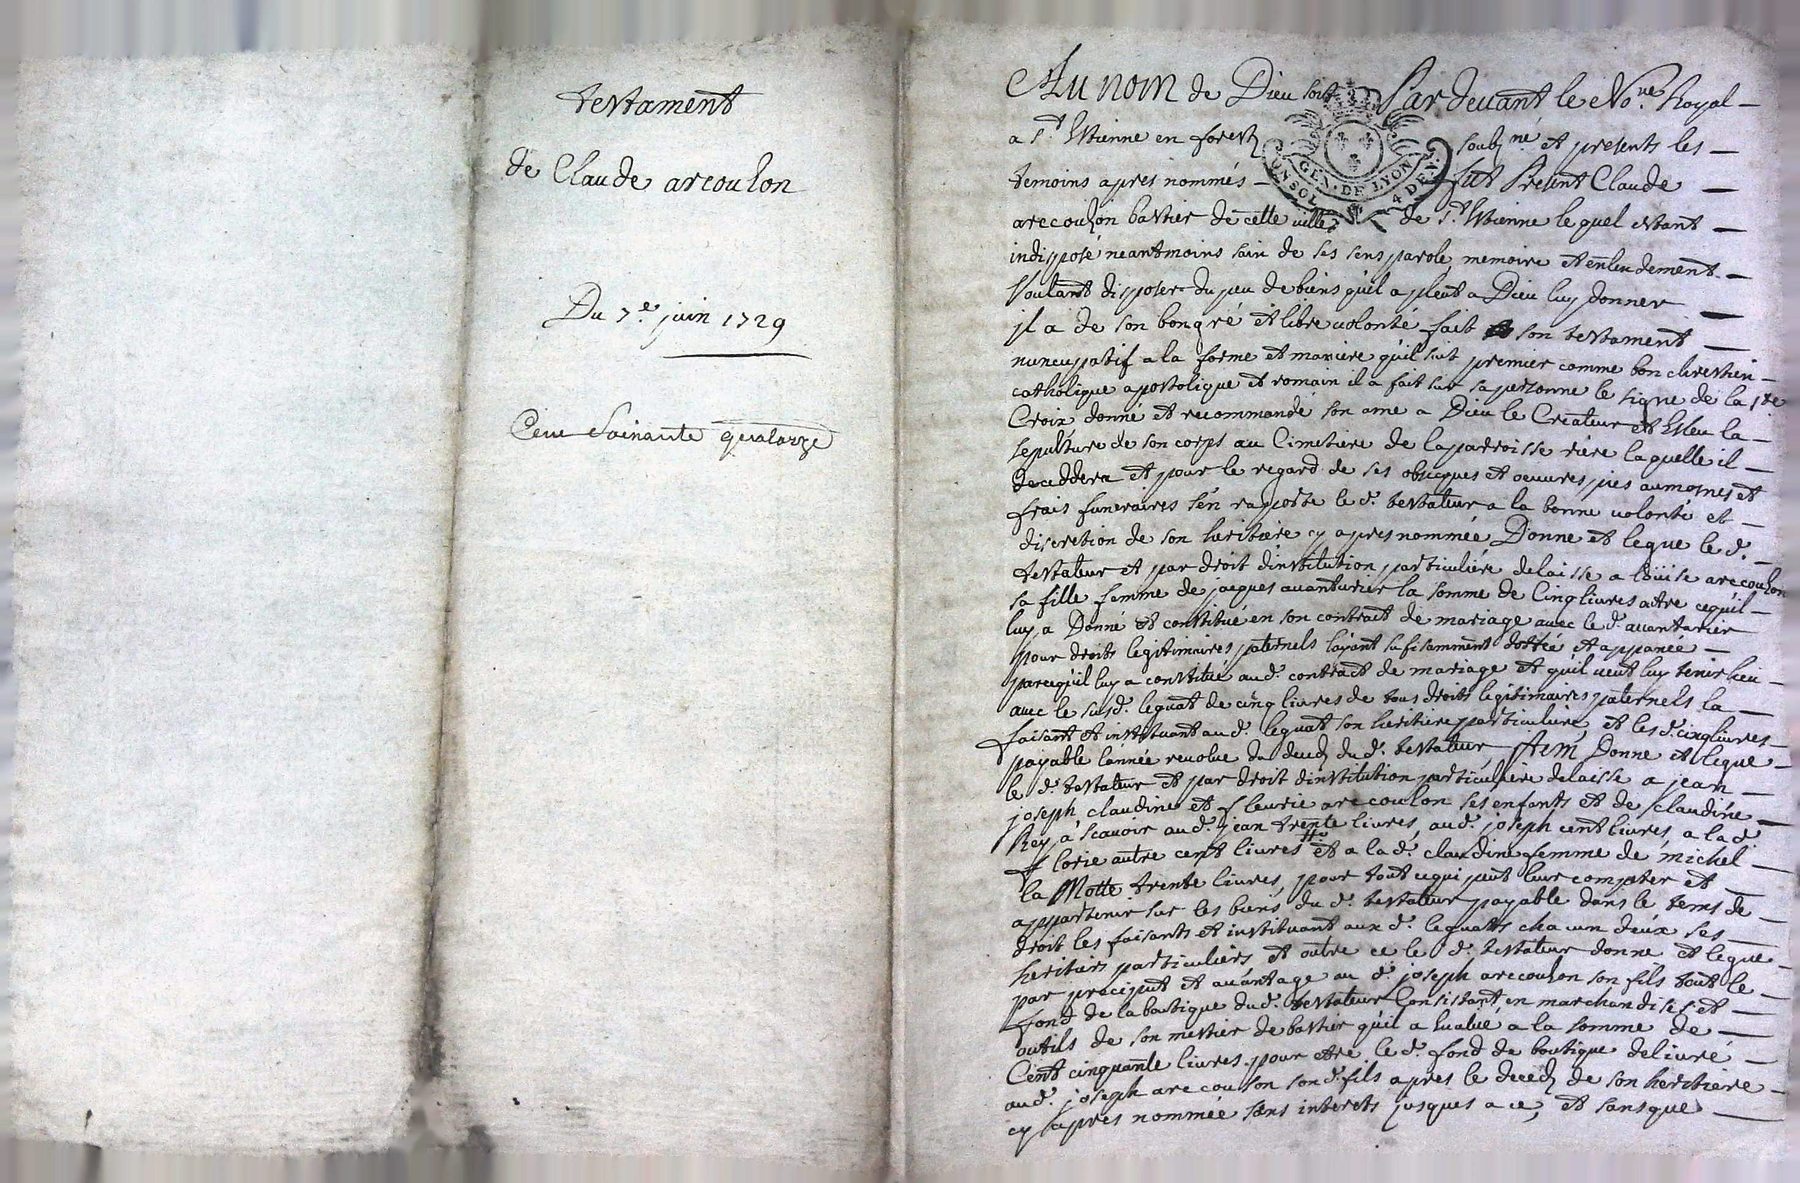 testament
de Claude arcoulon
Du 7.e juin 1729
Cent Soixante quatorze
Au nom de Dieu soit Pardevant le No.re Royal
a s.t Estienne en forest soubz.né et presents les
temoins apres nommés fut Present Claude
arecoulon bastier de cette ville de s.t Estienne le quel estant
indisposé neantmoins sain de ses sens parole memoire et entendement
Voulant disposer du peu de biens qu'il a pleut a Dieu luy donner
il a de son bon gré et libre volonté fait son testament
nuncupatif a la forme et maniere qu'il suit premier comme bon chrestien
catholique apostolique et romain il a fait sur sa personne le signe de la s.te
Croix donné et recommandé son ame a Dieu le Createur et Esleu la
sepulture de son corps au Cimetiere de la parroisse riere laquelle il
deceddera et pour le regard de ses obseques et oeuvres pies aumosnes et
frais funeraires s'en rapporte le d. testateur a la bonne volonté et
discretion de son heritiere cy apres nommée Donne et legue le d.
testateur et par droit d'institution particuliére delaisse a loüise arecoulon
sa fille femme de jacques avanturier la somme de Cinq livres outre cequ'il
luy a Donné et constitué en son contract de mariage avec le d. avanturier
pour droits legitimaires paternels l'ayant sufisamment dottée et appanée
parcequ'il luy a constitué aud. contract de mariage et qu'il veut luy tenir lieu
avec le susd. leguat de cinq livres de tous droits legitimaires paternels la
faisant et instituant aud. leguat son heritiere particuliere et les d. cinq livres
payable l'année revolue du deceds dud. testateur Item Donne et legue
le d. testateur et par droit d'institution particuliere delaisse a jean
joseph claudine et fleurie arecoulon ses enfants et de claudine
Rey a scavoir aud. jean trente livres, aud. joseph cent livres, a la d.
florie autre cent livres et a la d. claudine femme de michel
la Motte trente livres, pour tout cequi peut leur compter et
appartenir sur les biens du d. testateur payable dans le tems de
droit les faisants et instituant aux d. leguatts chacun deux ses
heritiers particuliers et outre ce le d. testateur donne et legue
par preciput et avantage au d. joseph arecoulon son fils tout le
fond de la boutique dud. testateur Consistant en marchandises et
outils de son mestier de bastier qu'il a Evalué a la somme de
Cent cinquante livres pour etre le d. fond de boutique delivré
aud. joseph arecoulon son d. fils apres le deceds de son heritiere
cy apres nommée sans interets jusques a ce, et sans que
GEN. DE LYON